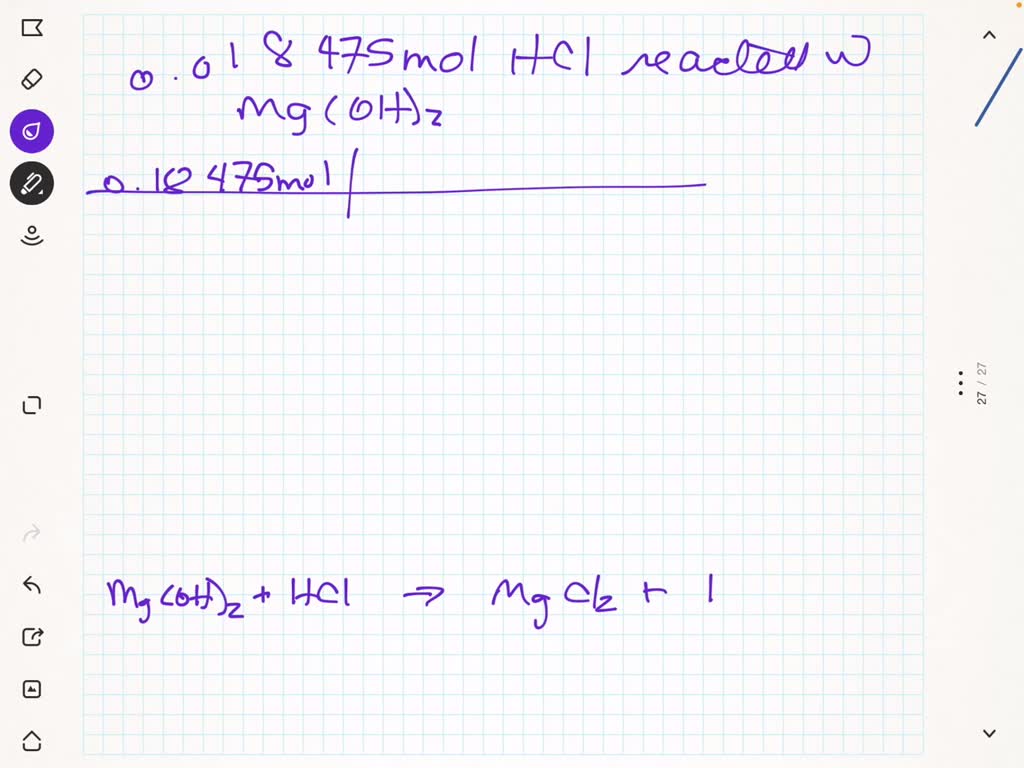 0.018475mol HCl reacted w
Mg(OH)2
0.18475mol
Mg(OH)2 + HCl ⇒ MgCl2 + 
27 / 27